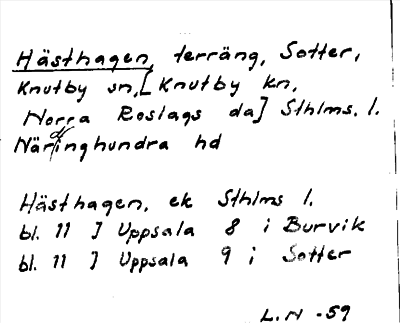 Hästhagen, terräng, Sotter,
Knutby sn, [Knutby kn,
Norra Roslags da] Sthlms. l.
Närdinghundra hd
Hästhagen, ek Sthlms l.
bl. 11 J Uppsala 8 i Burvik
bl. 11 J Uppsala 9 i Sotter
L.N -59